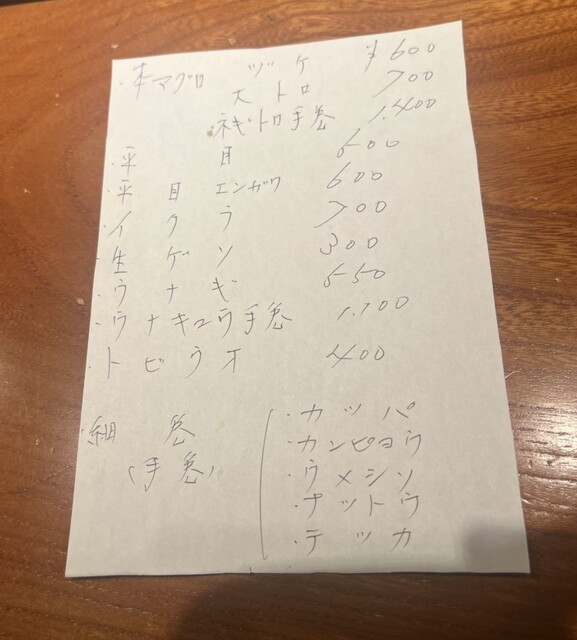 ・本マグロ ヅケ ¥600
大トロ 700
ネギトロ手巻 1.400
・平目 600
・平目エンガワ 600
・イクラ 700
・生ゲソ 300
・ウナギ 550
・ウナキュウ手巻 1.100
・トビウオ 400
・細巻
(手巻)
・カッパ
・カンピョウ
・ウメシソ
・ナットウ
・テッカ